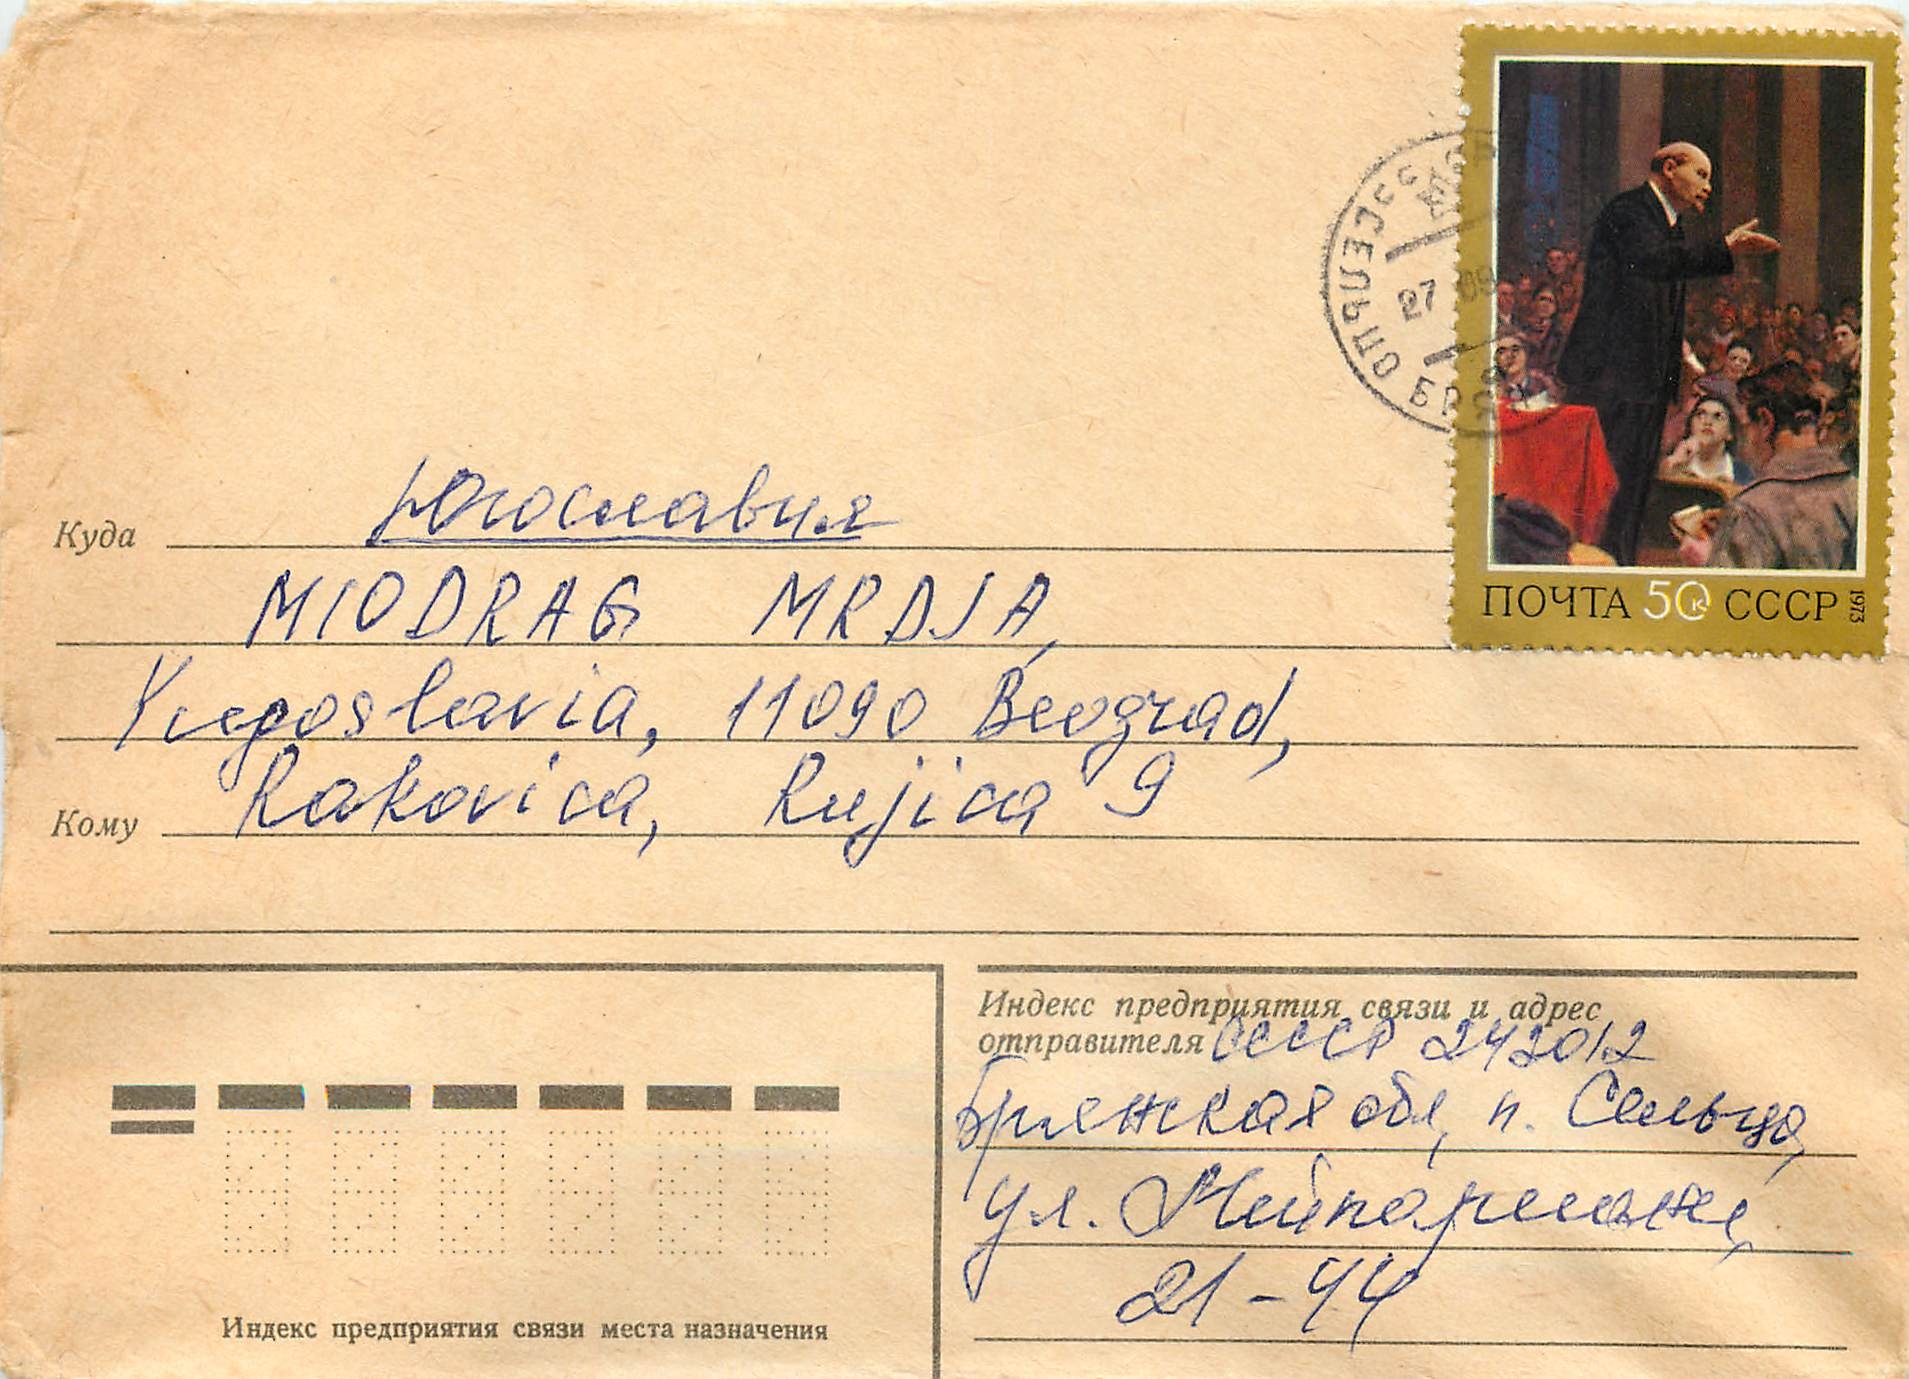 СЕЛЬЦО
27 05
БРЯ
ПОЧТА 50к СССР
1973
Куда Югославия
MIODRAG MRDJA,
Yugoslavia, 11090 Beograd,
Кому Rakovica, Rujica 9
Индекс предприятия связи и адрес
отправителя СССР 242012
Брянская обл, п. Сельцо,
ул.
21-44
Индекс предприятия связи места назначения